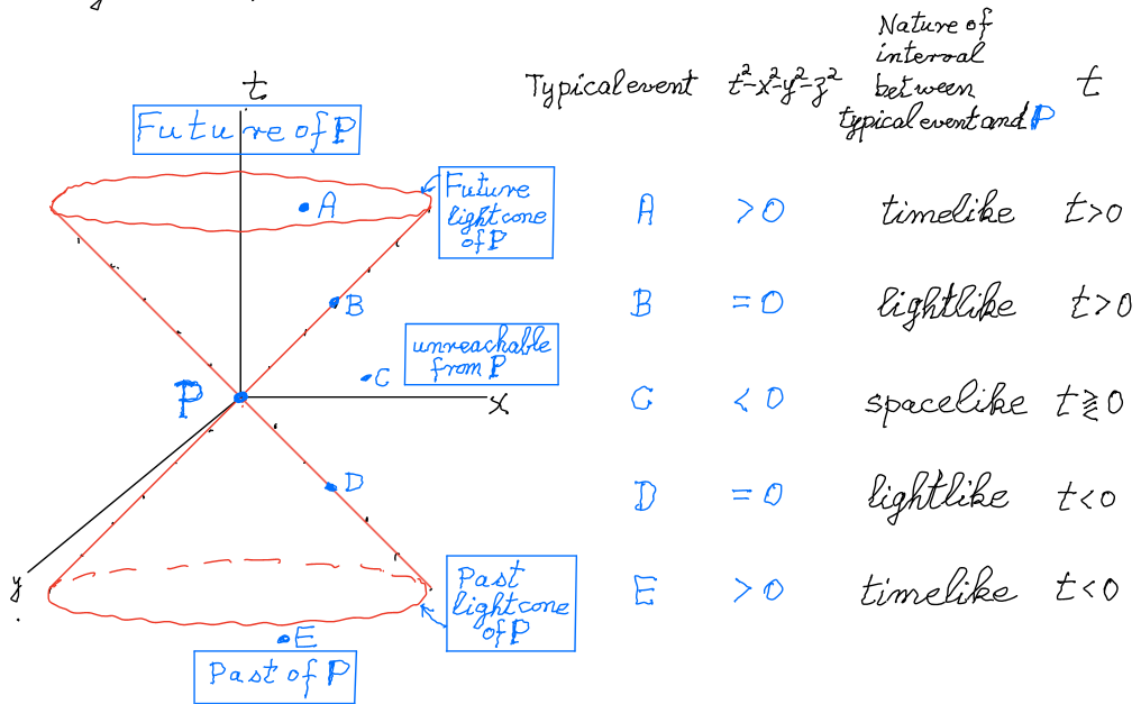 t
Future of P
A
Future
lightcone
of P
B
unreachable
from P
C
P
x
D
y
Past
lightcone
of P
E
Past of P
Typical event
t²-x²-y²-z²
Nature of
interval
between
typical event and P
t
A >0 timelike t>0
B =0 lightlike t>0
C <0 spacelike t⪌0
D =0 lightlike t<0
E >0 timelike t<0